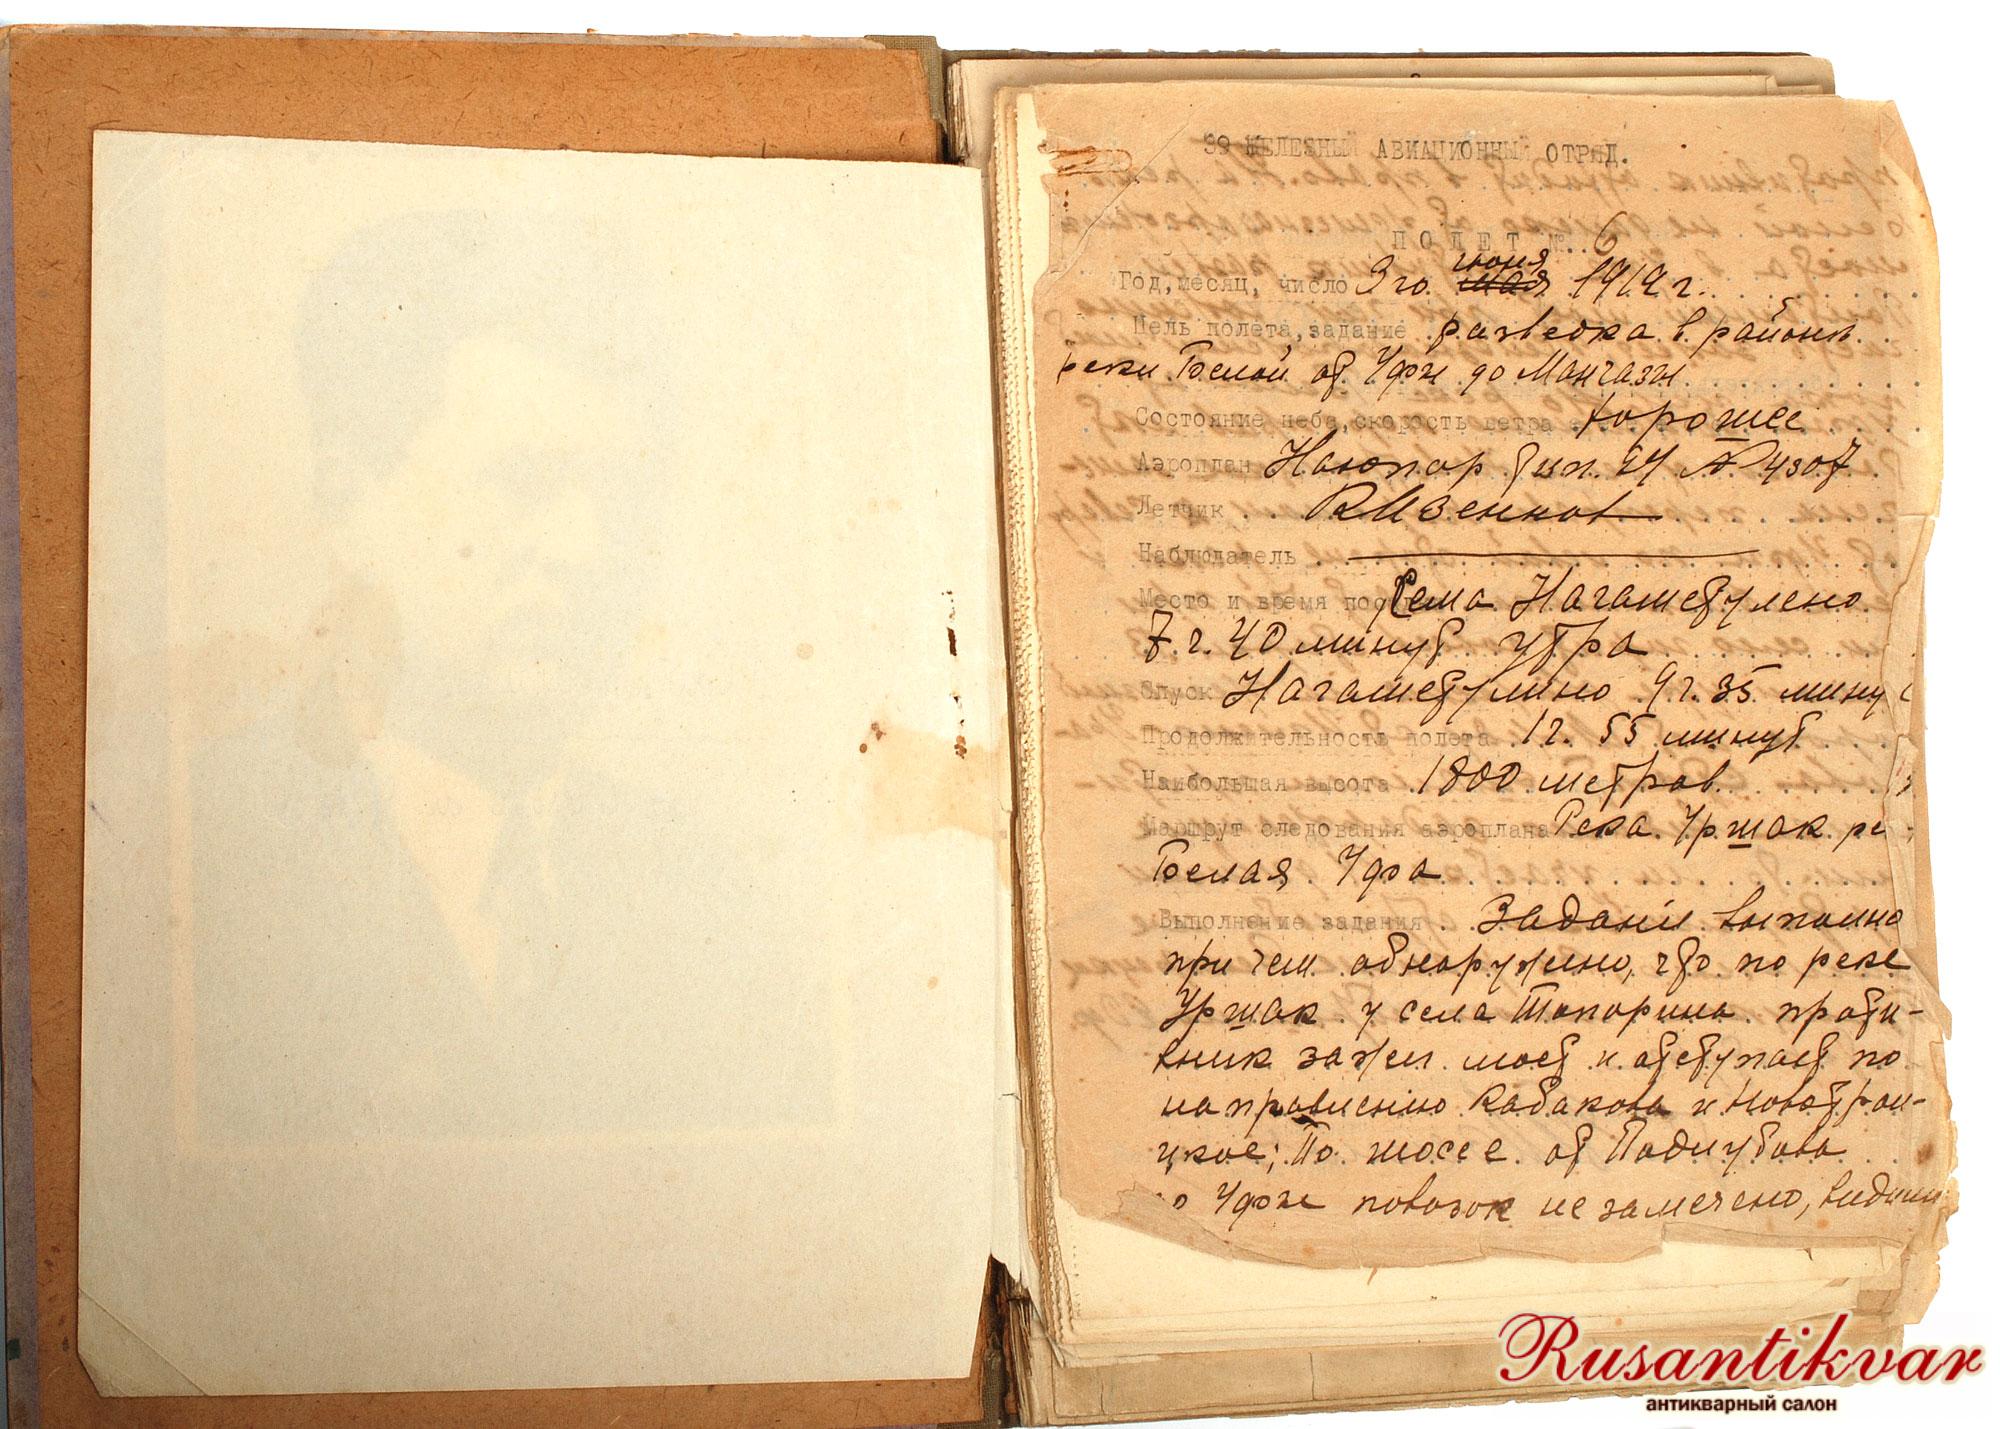 39 ЖЕЛЕЗНЫЙ АВИАЦИОННЫЙ ОТРЯД.
ПОЛЕТ №. 6
июня
Год, месяц, число 3го мая 1919 г.
Цель полета, задание разведка в районе
реки Белой от Уфы до
Состояние неба, скорость ветра хорошее
Аэроплан Ньюпор тип. 24 № 4307
Летчик
Наблюдатель
Место и время Села
7 г. 40 минут утра
Спуск 9 г. 35 мину
Продолжительность полета 1 г. 55 минут
Наибольшая высота 1800 метров
Маршрут следования аэроплана Река Уршак ре
Белая, Уфа
Выполнение задания. Задание
при чем обнаружено, что по реке
Уршак у села Топорино проти-
вник зажег мост и отступает по
направлению Кабакова и Новотрои-
цкое; По шоссе от
Уфы повозок не замечено,
Rusantikvar
антикварный салон